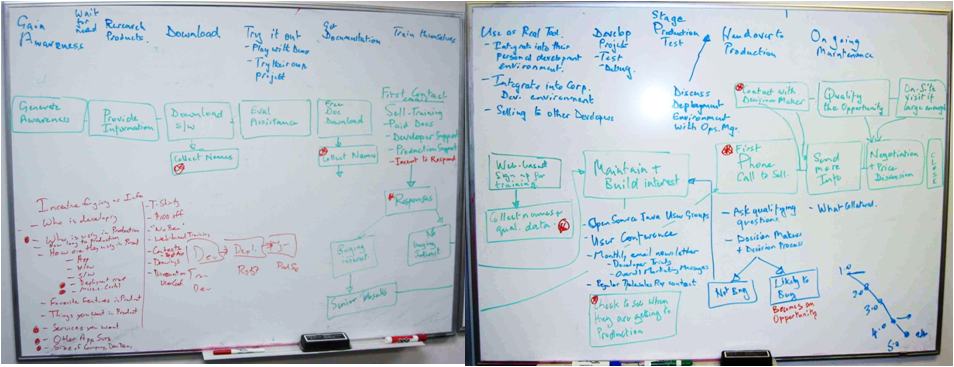 Gain
Awareness
Wait
for
need
Research
Products.
Download
Try it out
- Play with Demo
- Try their own
project
Documentation
Train themselves
Generate
Awareness
Provide
Information
Download
S/W
Eval
Assistance
Free
Doc
Download
First Contact
Self-Training
- Paid Docs
- Developer Support
- Production Support
- Incent to Respond
Collect Names
Collect Names
Responses
Buying
interest
No
buying
interest
Incentive for giving us Info
- Who is developing
- Who is using in Production
- How are they using in Prod
- App
- H/W
- S/W
- Favorite Features in Product
- Things you want in Product
- Services you want
- Other App Svrs
- T-Shirts
- $100 off
- Web based Training
- Contests
- Drawings
Use as Real Tool.
- Integrate into their
personal development
environment.
- Integrate into Corp.
Dev. environment
- Selling to other Developers
Develop
Project
- Test
- Debug.
Stage
Production
Test
Discuss
Deployment
Environment
With Ops. Mgr.
Handover to
Production
On going
Maintenance
Contact with
Decision Maker
Qualify
the Opportunity
On-Site
visit if
large enough
Web-based
Sign up for
training
Maintain +
Build interest
First
Phone
Call to Sell.
Send
more
Info
Negotiation
+ Price
Discussion
CLOSE
Collect names +
qual. data
- Open Source Java User Groups
- User Conference
- Monthly email newsletter
- Developer Tricks
- Overall Marketing Messages
- Ask qualifying
questions
- Decision Makers
+ Decision Process
- What Collateral.
Not Buy
Likely to
Buy
Becomes an
Opportunity
Check to see when
they are getting to
Production
1.0
2.0
3.0
4.0
5.0